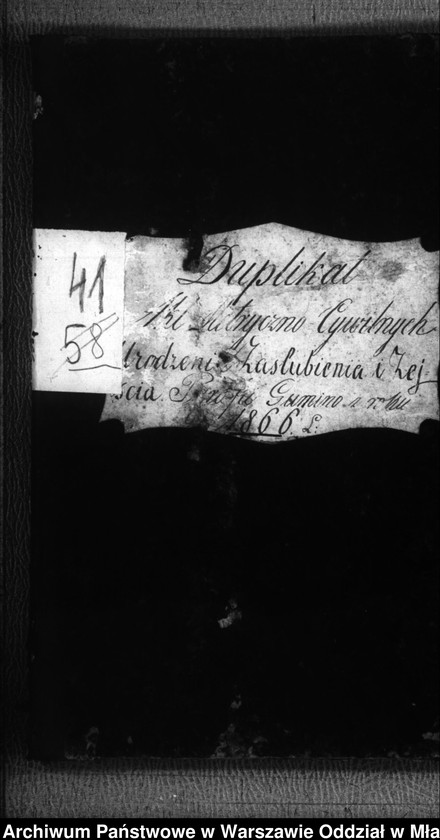 41
58
Duplikat
Akt Metryczno Cywilnych
Urodzenia Zaślubienia i Zej
ścia Gumino z roku
1866 r.
Archiwum Państwowe w Warszawie Oddział w Mła